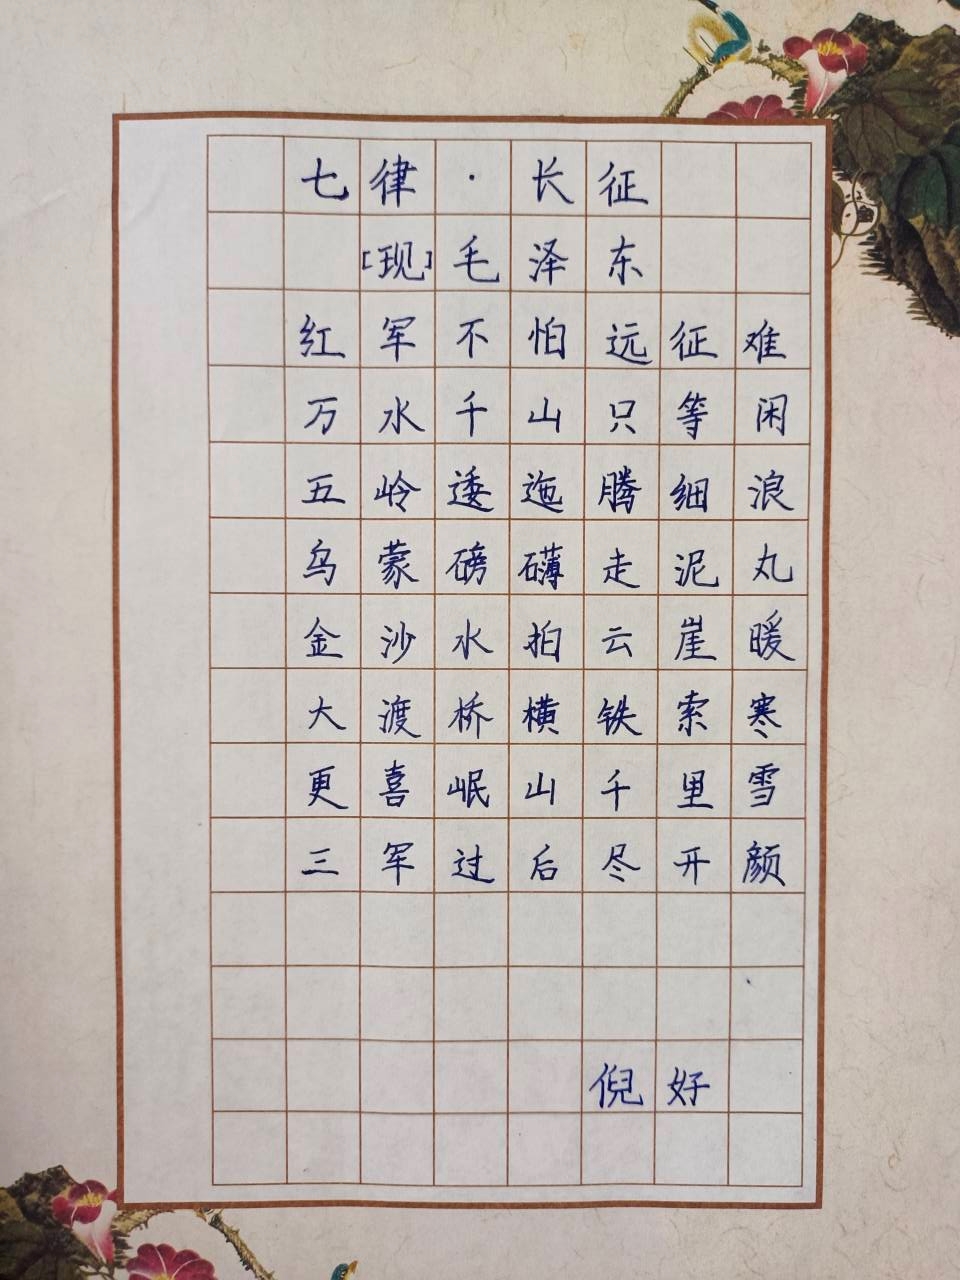 七律·长征
[现]毛泽东
红军不怕远征难
万水千山只等闲
五岭逶迤腾细浪
乌蒙磅礴走泥丸
金沙水拍云崖暖
大渡桥横铁索寒
更喜岷山千里雪
三军过后尽开颜
倪好